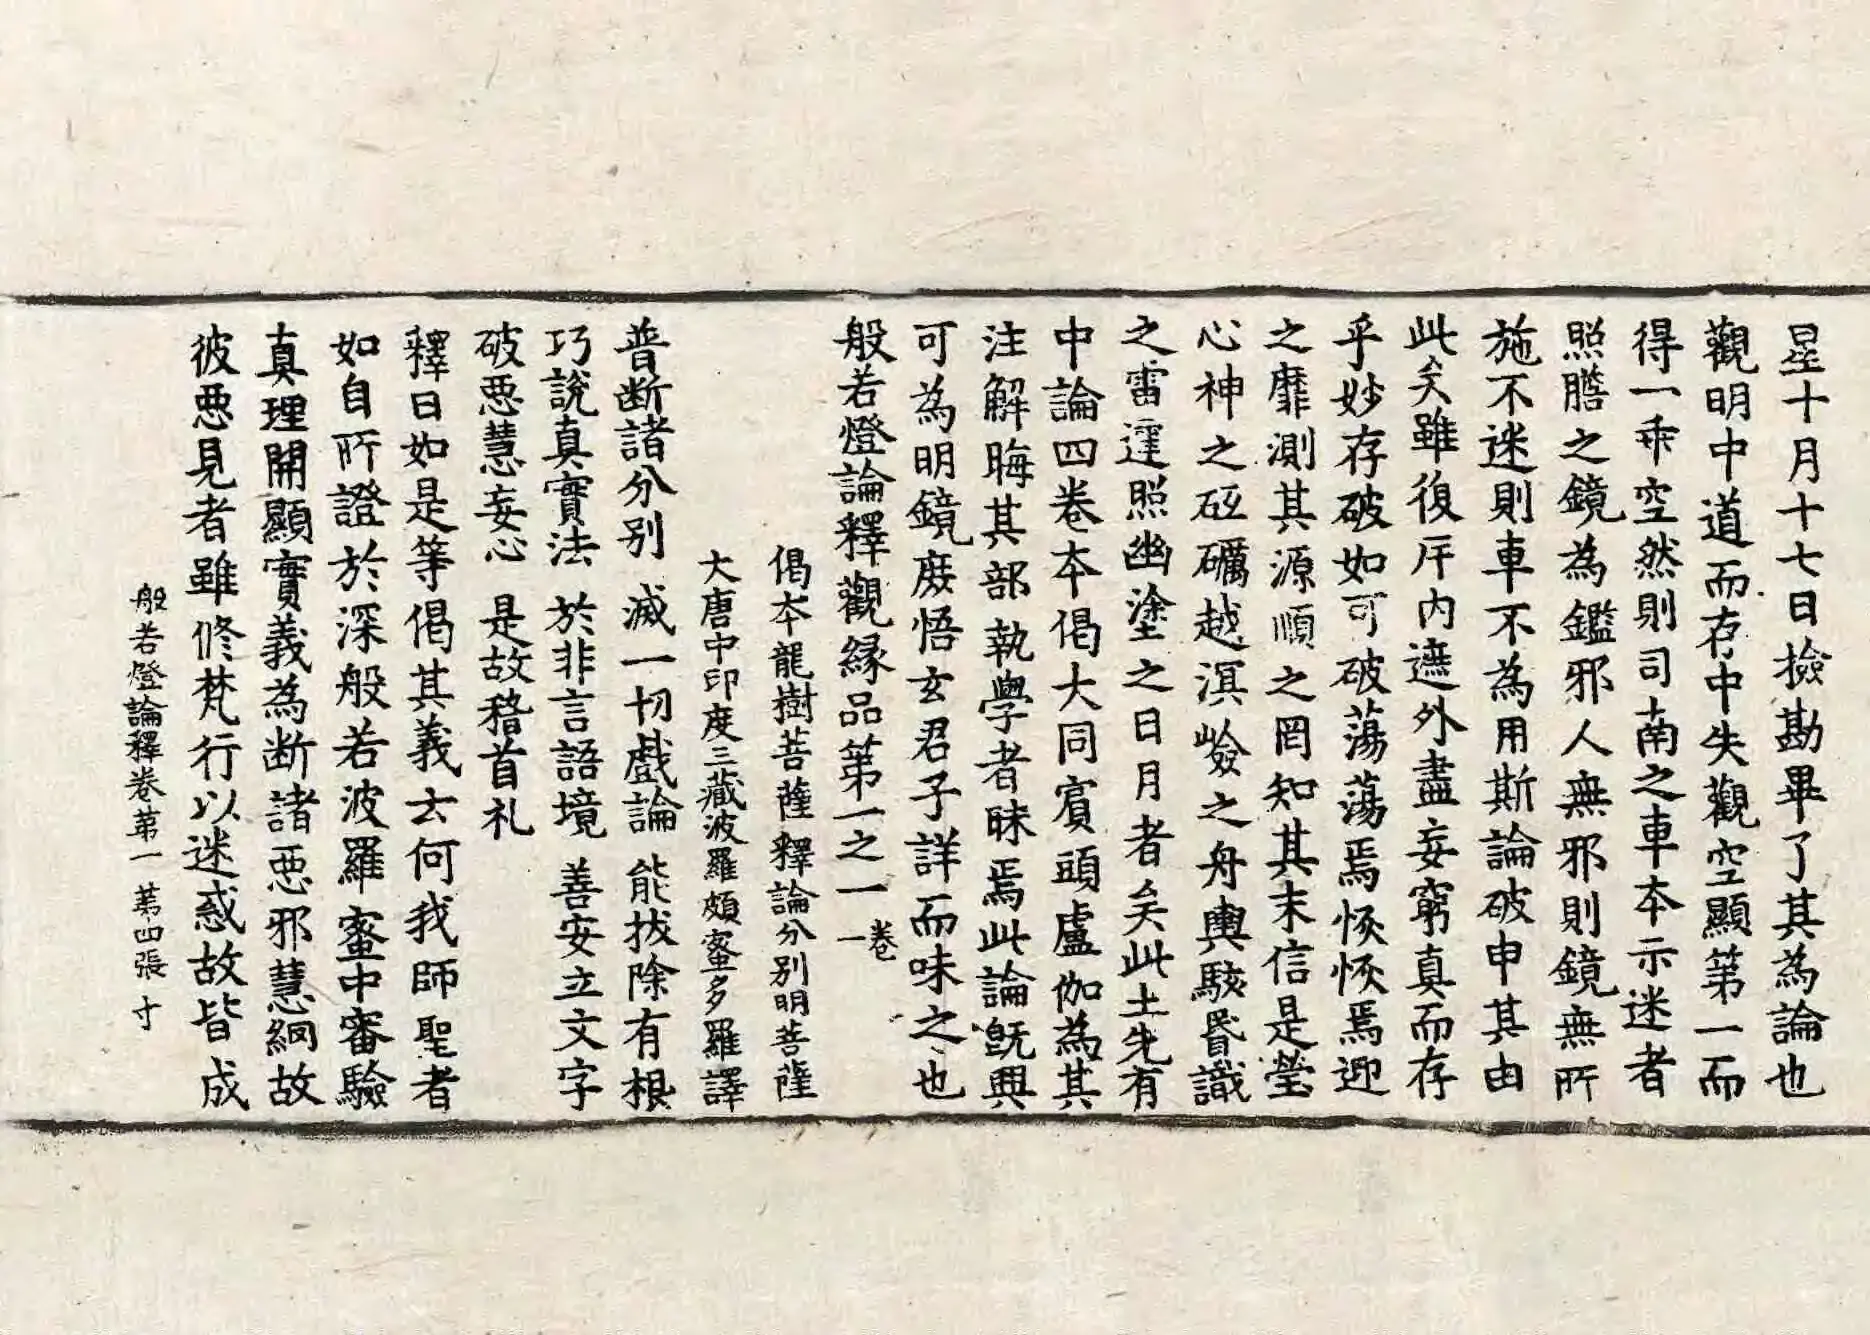 星十月十七日撿勘畢了其為論也
觀明中道而存中失觀空顯第一而
得一乖空然則司南之車夲示迷者
照膽之鏡為鑑邪人無邪則鏡無所
施不迷則車不為用斯論破申其由
此矣雖復斥內遮外盡妄窮真而存
乎妙存破如可破蕩蕩焉恢恢焉迎
之靡測其源順之罔知其末信是瑩
心神之砥礪越溟嶮之舟輿駭昬識
之雷霆照幽塗之日月者矣此土先有
中論四卷夲偈大同賔頭盧伽為其
注解晦其部執學者昧焉此論旣興
可為明鏡庻悟玄君子詳而味之也
般若燈論釋觀縁品第一之一 卷一
偈夲龍樹菩薩 釋論分別明菩薩
大唐中印度三藏波羅頗蜜多羅譯
普断諸分别 滅一切戲論 能拔除有根
巧說真實法 於非言語境 善安立文字
破惡慧妄心 是故稽首礼
釋曰如是等偈其義云何我師聖者
如自所證於深般若波羅蜜中審驗
真理開顯實義為断諸惡邪慧網故
彼惡見者雖修梵行以迷惑故皆成
般若燈論釋卷第一 第四張 寸